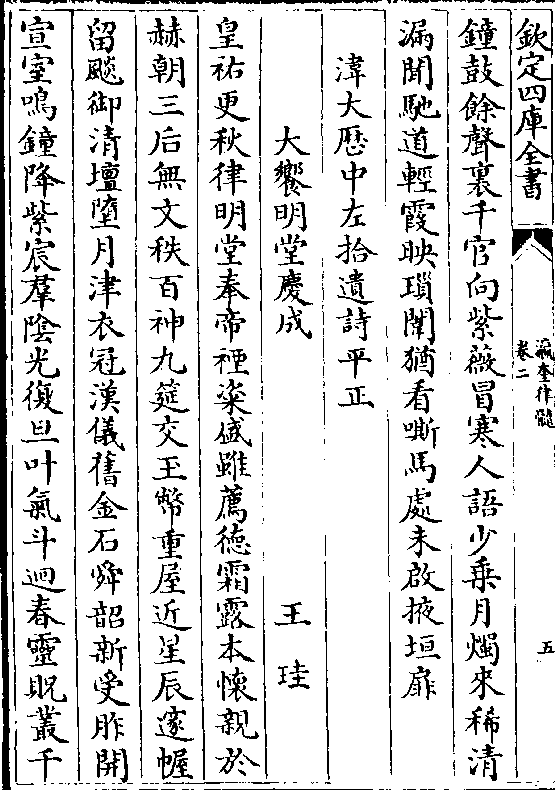 欽定四庫全書
瀛奎律髓
卷二
五
鐘鼓餘聲裏千官向紫薇冒寒人語少乗月燭來稀清
漏聞馳道輕霞映瑣闈猶看嘶馬處未啟掖垣扉
湋大歴中左拾遺詩平正
大饗明堂慶成 王珪
皇祐更秋律明堂奉帝禋粢盛雖薦徳霜露本懐親於
赫朝三后無文秩百神九筵交玉幣重屋近星辰邃幄
留飈御清壇墮月津衣冠漢儀舊金石舜韶新受胙開
宣室鳴鐘降紫宸羣陰光復旦叶氣斗迴春靈貺叢千